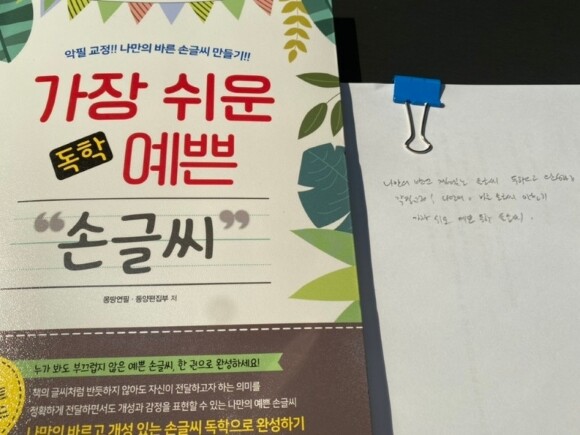 악필 교정!! 나만의 바른 손글씨 만들기!!
가장 쉬운
독학 예쁜
“손글씨”
몽땅연필 · 동양편집부 저
누가 봐도 부끄럽지 않은 예쁜 손글씨, 한 권으로 완성하세요!
책의 글씨처럼 반듯하지 않아도 자신이 전달하고자 하는 의미를
정확하게 전달하면서도 개성과 감정을 표현할 수 있는 나만의 예쁜 손글씨
나만의 바르고 개성 있는 손글씨 독학으로 완성하기
나만의 손글씨 독학으로
악필교정! 나만의 바른 손글씨 만들기
가장 쉬운 예쁜 독학 손글씨.